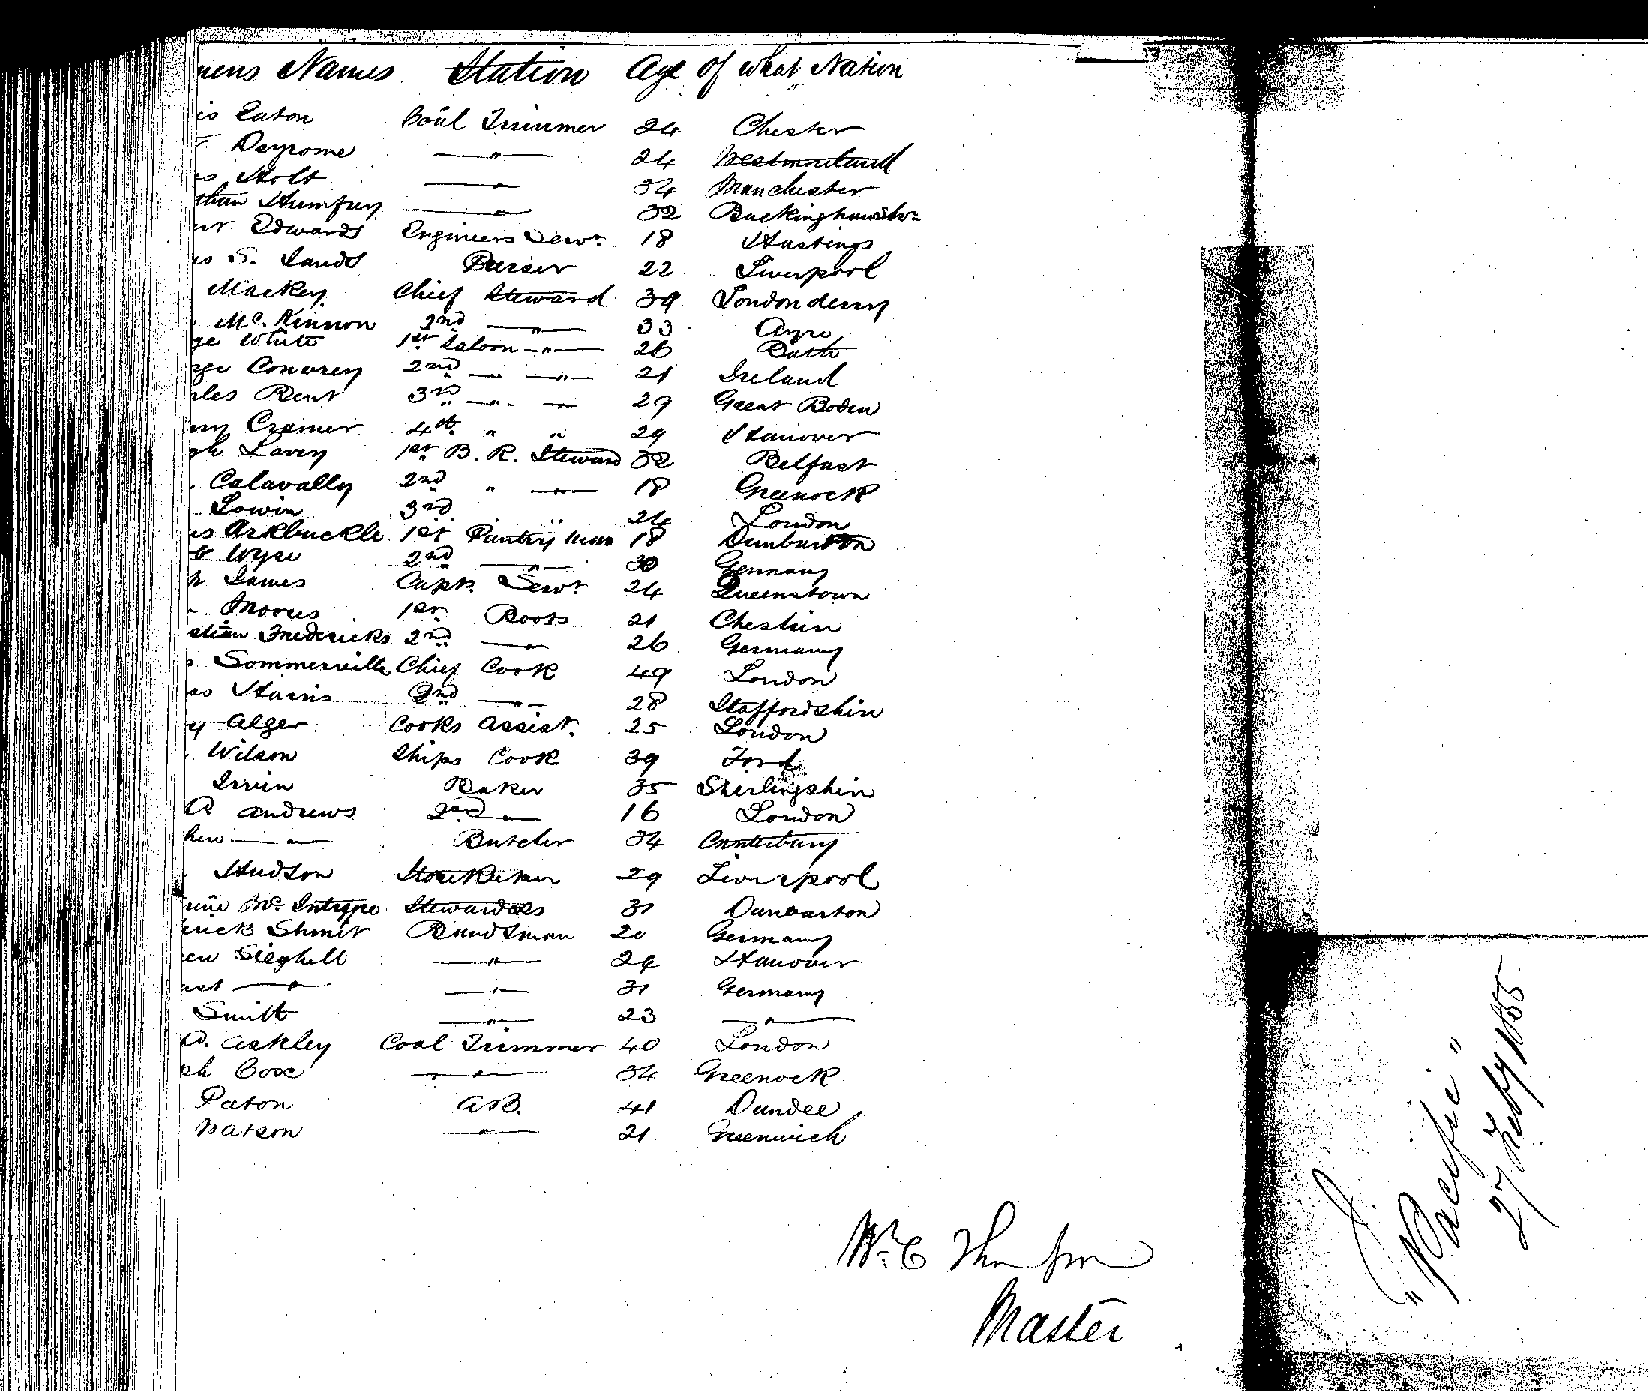 mens Names Station Age of what Nation
is Eaton Coal Trimmer 24 Chester
Deyrome — " — 24 Westmorland
s Holt — " — 34 Manchester
than Humfrey — " — 32 Buckinghamshr
Edwards Engineers Sewt 18 Hastings
es S. Sands Purser 22 Liverpool
Mackey Chief Steward 39 Londonderry
Mc. Kinnon 2nd — " — 33 Ayre
ge White 1st Saloon — " — 26 Bath
rge Conorey 2nd — — " — 21 Ireland
rles Rent 3rd — " — 29 Great Boden
ry Cramer 4th " " 29 Hanover
gh Lavey 1st B. R. Steward 32 Belfast
Calavally 2nd " — " — 18 Greenock
Lowin 3rd " " 24 London
es Arkbuckle 1st Pantry man 18 Dunbarton
Wyse 2nd — 30 Germany
James Capts. Sewt 24 Queenstown
Morris 1st Boots 21 Cheshir
stian Fredericks 2nd — " — 26 Germany
Sommerville Chief Cook 49 London
as Hairis 2nd — " — 28 Staffordshir
y Alger Cooks Assist. 25 London
Wilson Ships Cook 39
Irvin Baker 35 Sterlingshir
A Andrews 2nd — 16 London
hew — " — Butcher 34 Canterbury
Hudson Storekeeper 29 Liverpool
Mc Intyre Stewardess 31 Dunbarton
erick Shmit Bandsman 20 Germany
Sieghell — " — 24 Hanover
— " — — " — 31 Germany
Smitt — " — 23 — " —
A. Askley Coal Trimmer 40 London
ph Coxe — " — 34 Greenock
Paton A.B. 41 Dundee
Watson — " — 21 Greenwich
Wm C Thompson
Master
"Pacific"
27 Feby 1855